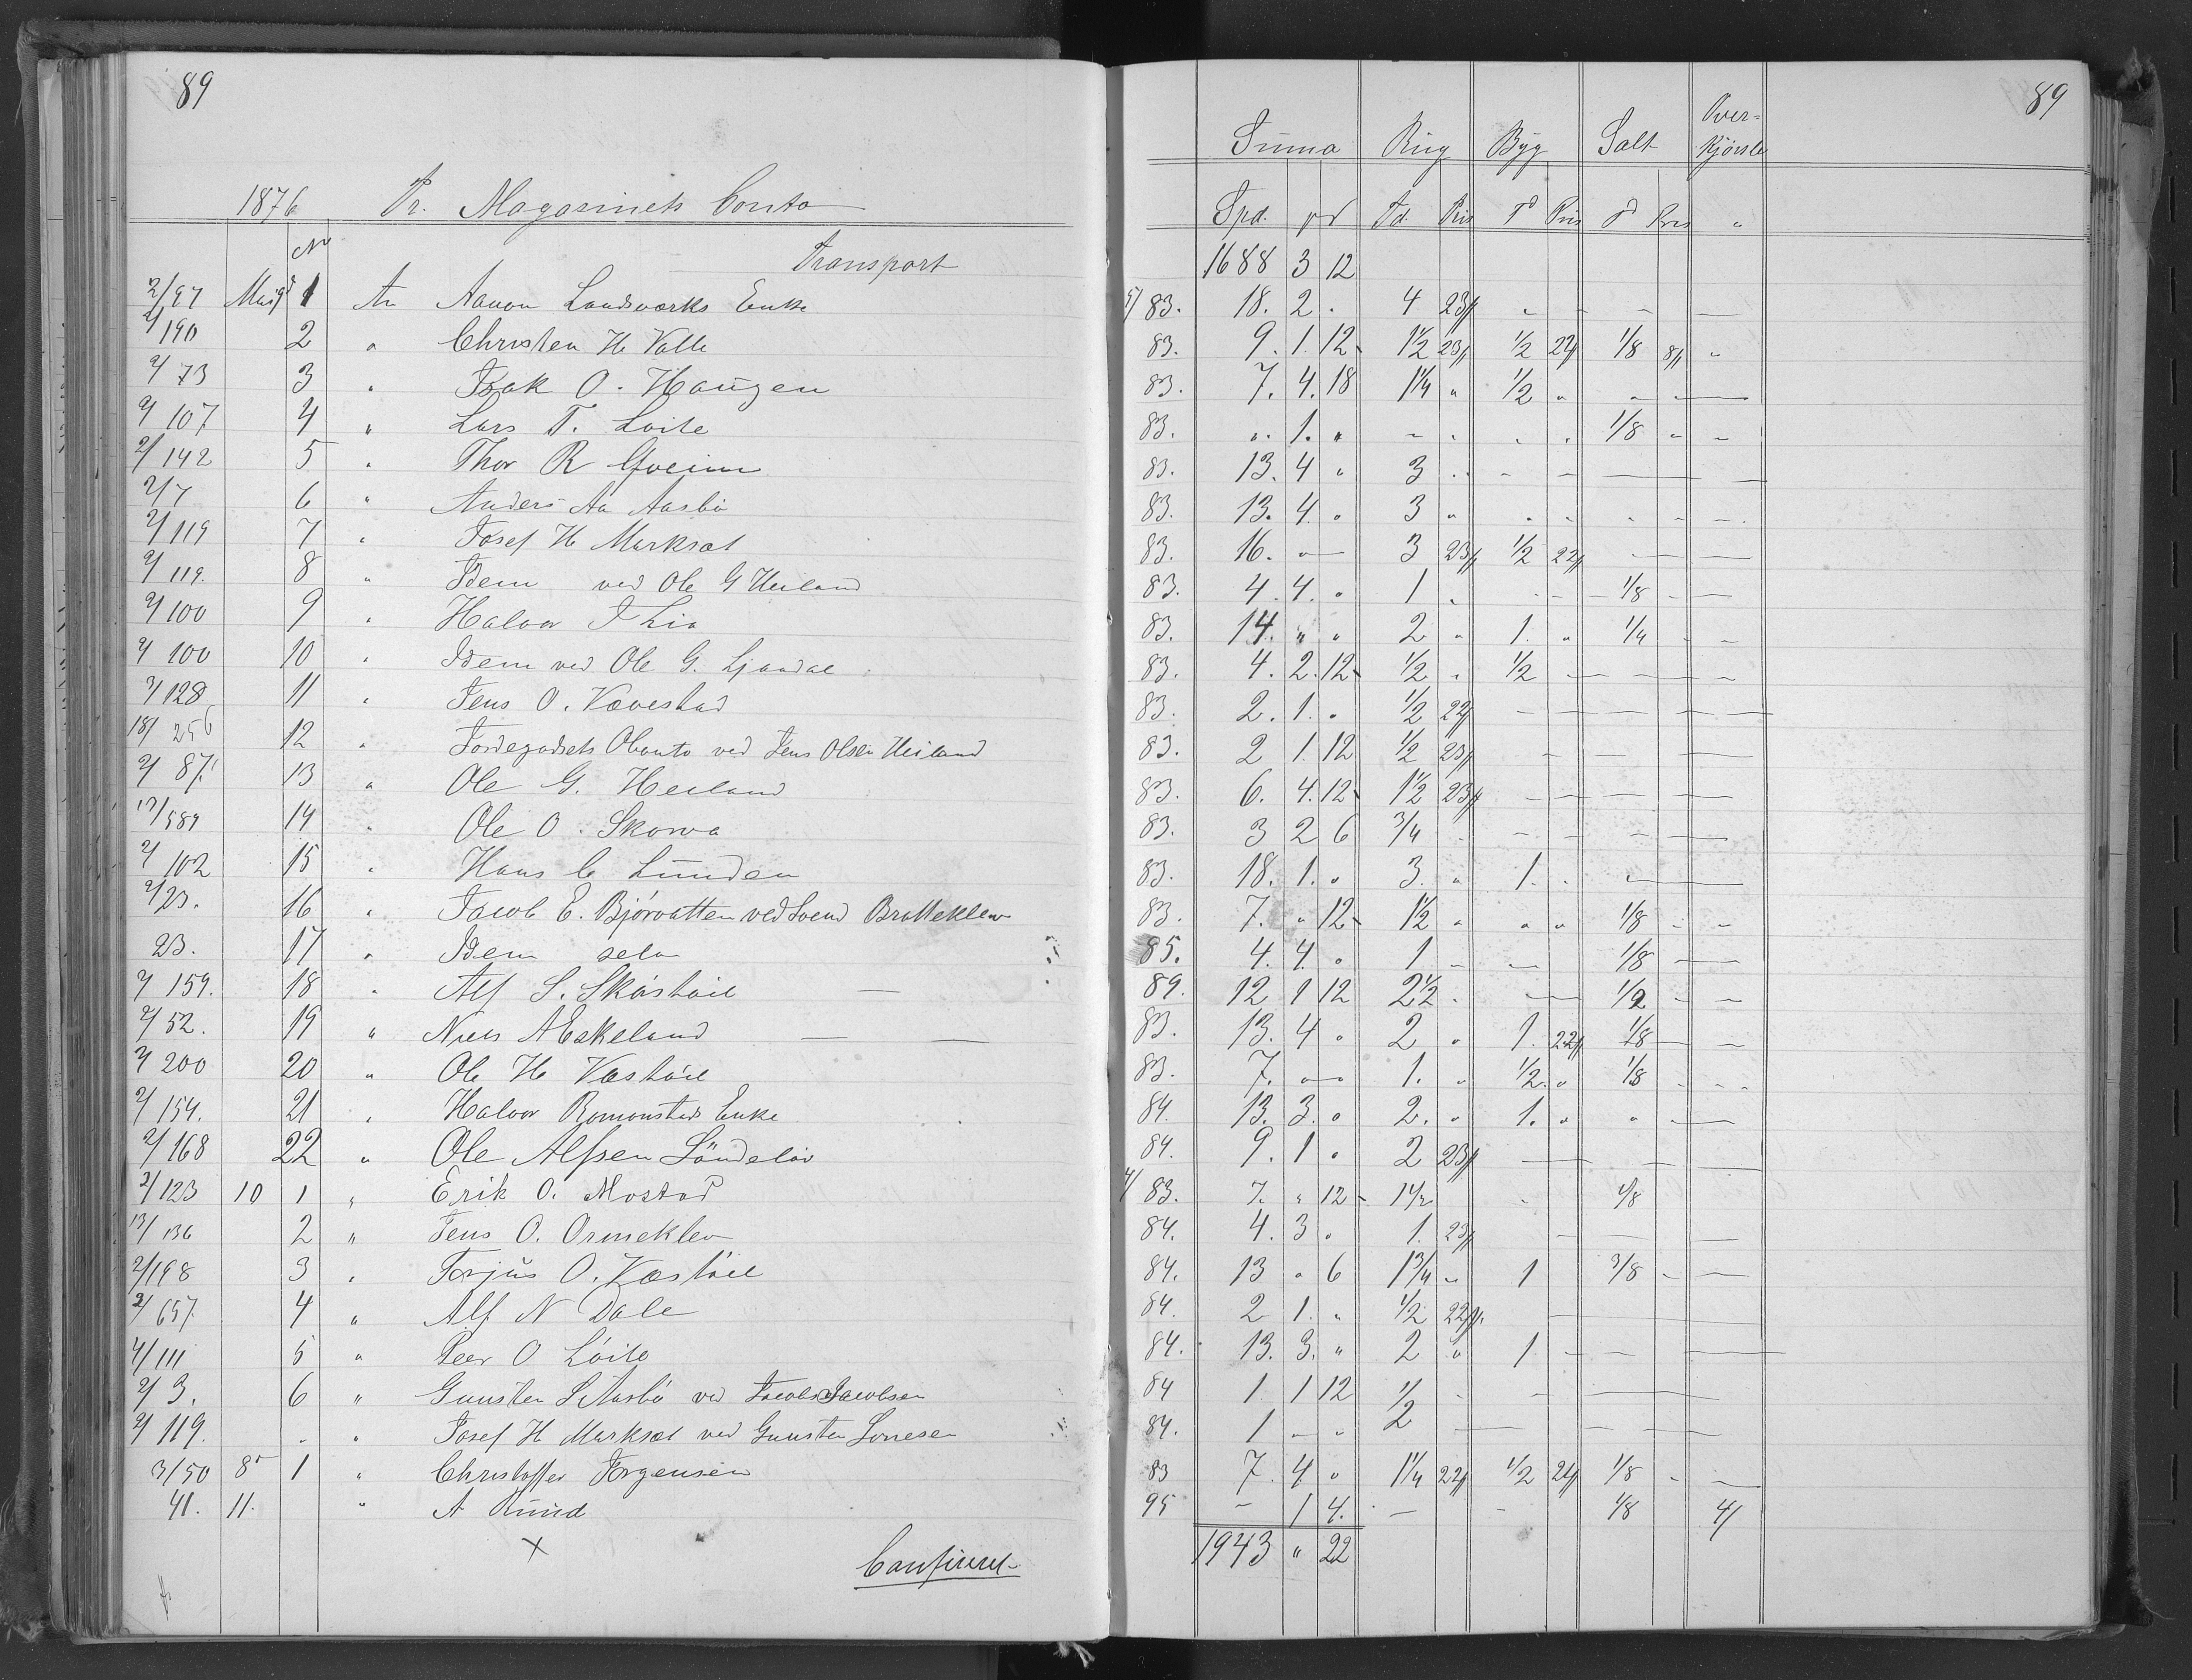 89
1876 Pr. Magasinets Conto
No Transport
2/97 Mai 9d 1 An Aanon Landsværks Enke
2/190 2 " Christen H. Valle
2/73 3 " Isak O. Haugen
2/107 4 " Lars T. Løite
2/142 5 " Thor R
2/7 6 " Anders Aa Aasbø
2/119 7 " Josef H Marksæt
2/119. 8 " Idem ved Ole G Heiland
2/100 9 " Halvor J Lia
2/100 10 " Idem ved Ole G. Ljaadal
3/128 11 " Jens O. Vævestad
18/256 12 " Jordegodsets Conto ved Jens Olsen Heiland
2/87. 13 " Ole G. Heiland
17/589 14 " Ole O. Skorva
2/102 15 " Hans C Lunden
2/23. 16 " Jacob E. Bjørvatten ved Svend Bratteklev
23. 17 " Idem selv
2/159. 18 " Alf S. Skåstøil
2/52. 19 " Niels A Eskeland
2/200 20 " Ole H Væstøil
2/154. 21 " Halvor Romonstads Enke
2/168 22 " Ole Alfsen Söndeløv
2/123 10 1 " Erik O. Mostad
13/136 2 " Jens O. Ormeklev
2/198 3 " Torjus O. Væstøil
2/657 4 " Alf N Dale
4/111 5 " Peer O Løite
2/3. 6 " Gunsten S Aasbø ved Jacob Jacobsen
2/119. " " Josef H Marksæt ved Gunsten
3/50 8d 1 " Christoffer Jørgensen
41. 11. " A Ruud
Confireret
89
Suma Rug Byg Salt Over-kjørsle
Spd. Td. Pris Td Pris Td Pris "
1688 3 12
5/83. 18. 2 . 4 23/
83. 9. 1. 12 1 1/2 23/ 1/2 22/ 1/8 8/ "
83. 7. 4. 18 1 1/4 " 1/2 "
83. " 1. " 1/8 " "
83. 13. 4 " 3
83. 13. 4. " 3 "
83. 16. " 3 23/ 1/2 22/
83. 4. 4. " 1 . 1/8
83. 14. " " 2 " 1. " 1/4
83. 4. 2. 12 1/2 . 1/2
83. 2. 1. . 1/2 22/
83. 2 1. 12 1/2 23/
83. 6. 4. 12 1 1/2 23/
83. 3 2 6 3/4
83. 18. 1. " 3. " 1.
83. 7. " 12 1 1/2 " " " 1/8
85. 4. 4. " 1 1/8
89. 12 1 12 2 1/2 1/2
83. 13. 4 " 2 " 1. 22/ 1/8
83. 7. " 1. " 1/2. " 1/8
84. 13. 3. " 2. " 1. " "
84. 9. 1 . 2 23/
4/83. 7. " 12 1 1/2 1/8
84. 4. 3 . 1. 23/
84. 13 " 6 1 3/4 " 1 3/8
84. 2 1. " 1/2 22/
84. 13. 3. " 2 " 1
84 1. 1 12 1/2
84. 1 " " 2
83 7. 4. " 1 1/4 22/ 1/2 24/ 1/8
95 - 1 4. - - 1/8 4/
1943 " 22